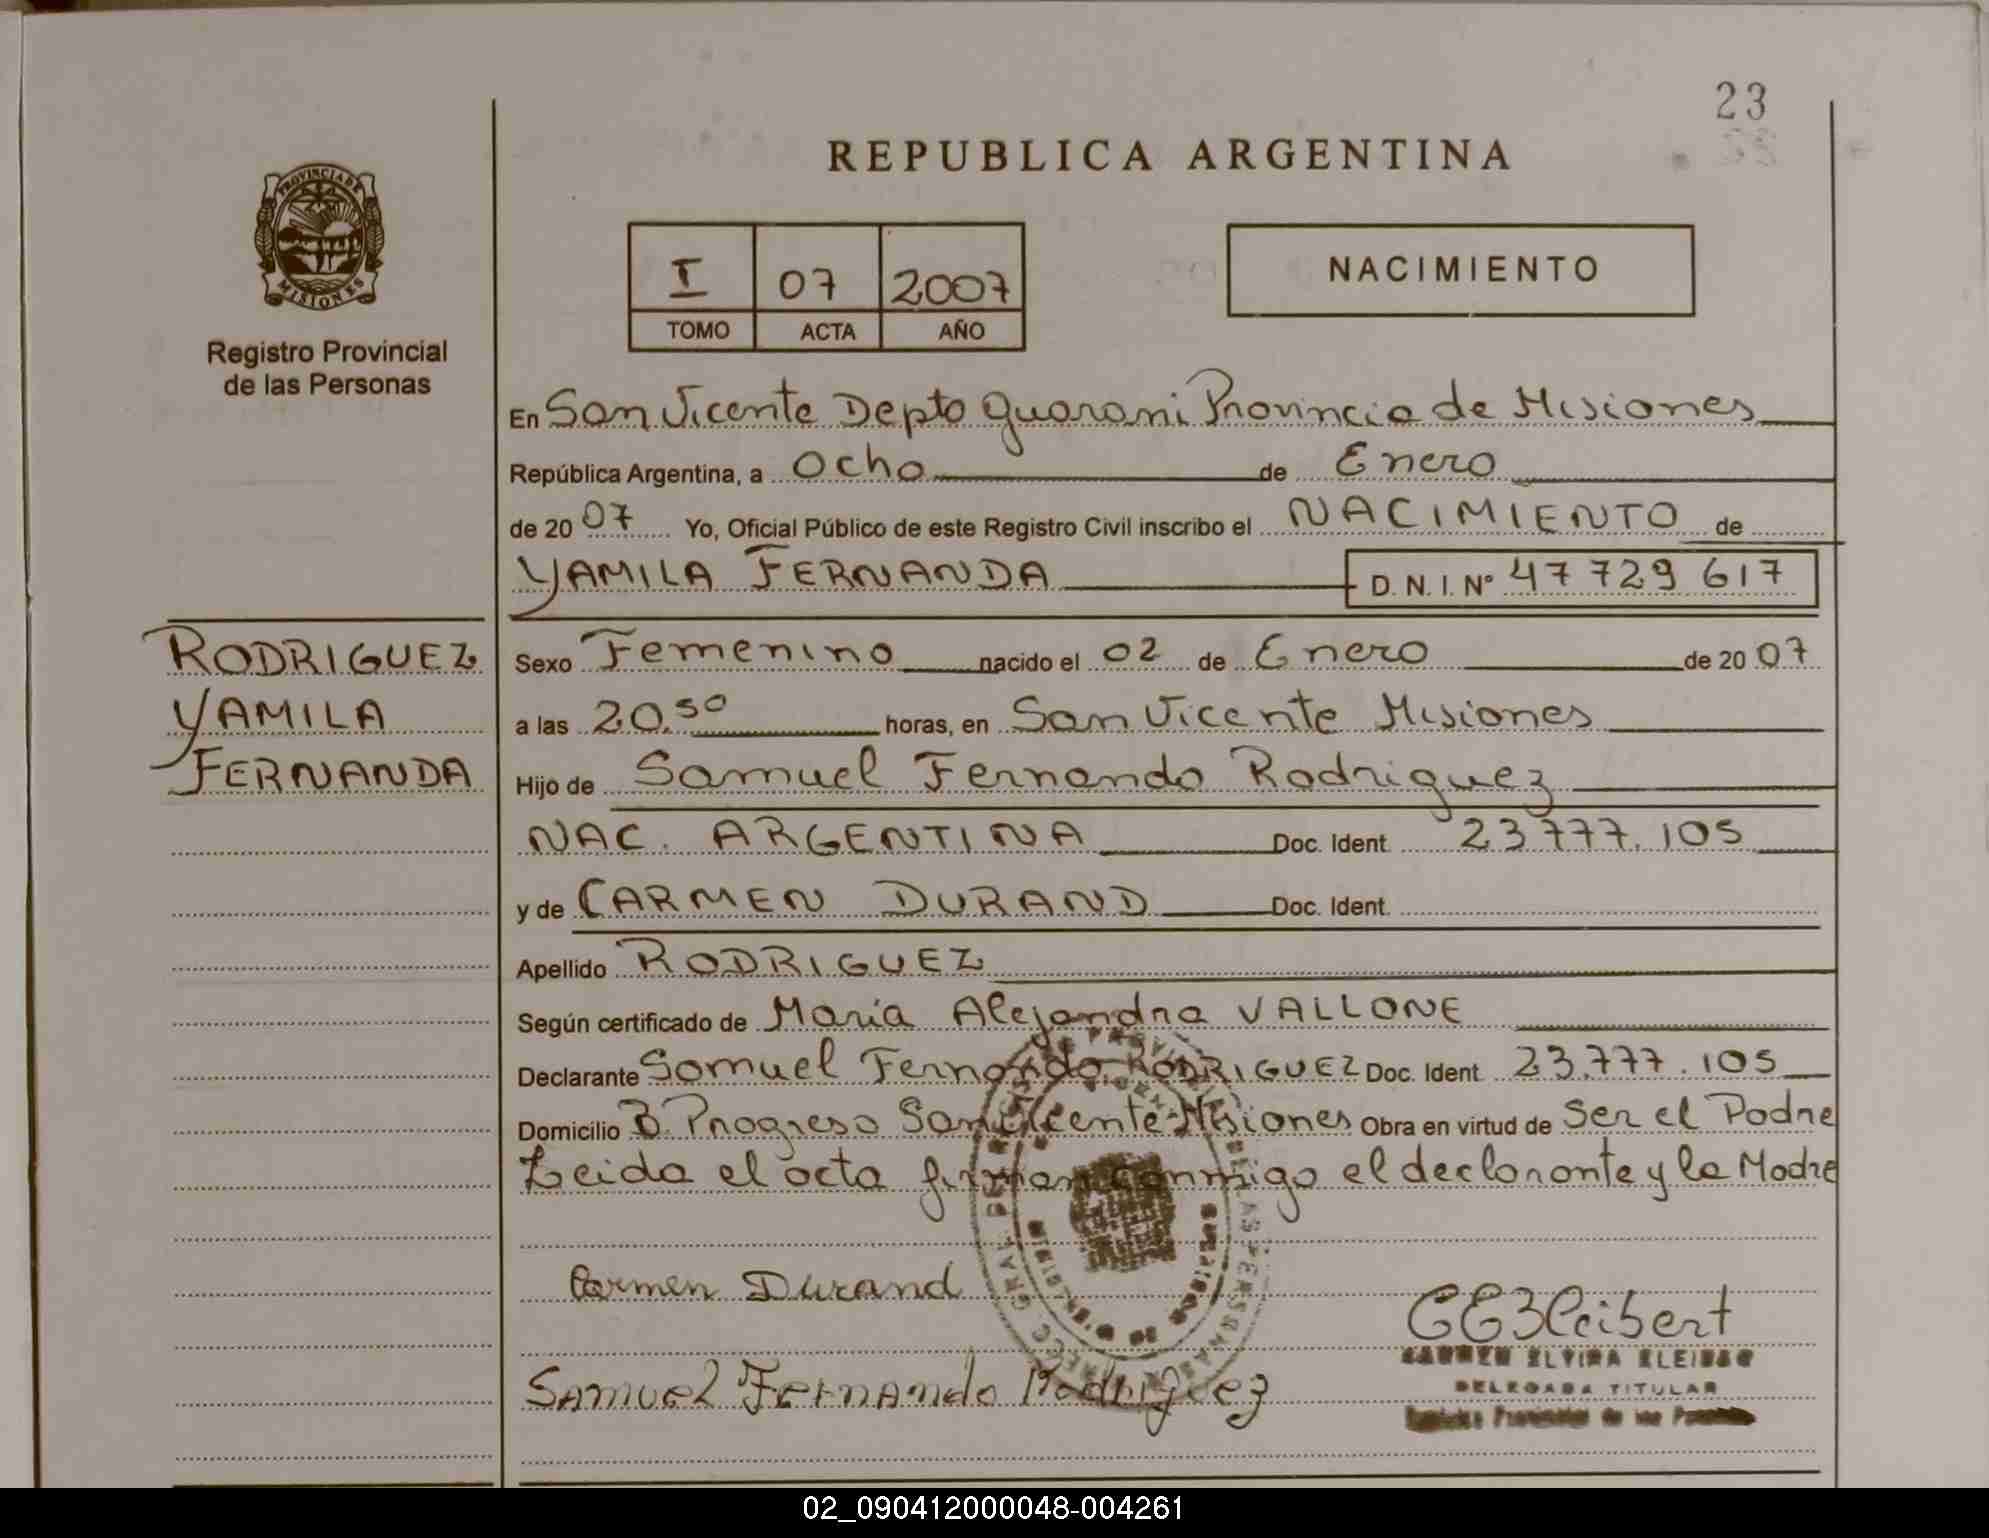 23
REPUBLICA ARGENTINA
PROVINCIA DE
MISIONES
Registro Provincial
de las Personas
I 07 2007
TOMO ACTA AÑO
NACIMIENTO
En San Vicente Depto Guarani Provincia de Misiones
República Argentina, a Ocho de Enero
de 20 07 Yo, Oficial Público de este Registro Civil inscribo el NACIMIENTO de
YAMILA FERNANDA D. N. I. N° 47 729 617
RODRIGUEZ
YAMILA
FERNANDA
Sexo Femenino nacido el 02 de Enero de 20 07
a las 20.50 horas, en San Vicente Misiones
Hijo de Samuel Fernando Rodriguez
NAC. ARGENTINA Doc. Ident. 23.777.105
y de CARMEN DURAND Doc. Ident.
Apellido RODRIGUEZ
Según certificado de María Alejandra VALLONE
Declarante Samuel Fernando RODRIGUEZ Doc. Ident. 23.777.105
Domicilio B. Progreso San Vicente Misiones Obra en virtud de Ser el Padre
Leida el acta firman conmigo el declarante y la Madre
Carmen Durand
Samuel Fernando Rodriguez
CARMEN ELVIRA
DELEGADA TITULAR
02_090412000048-004261